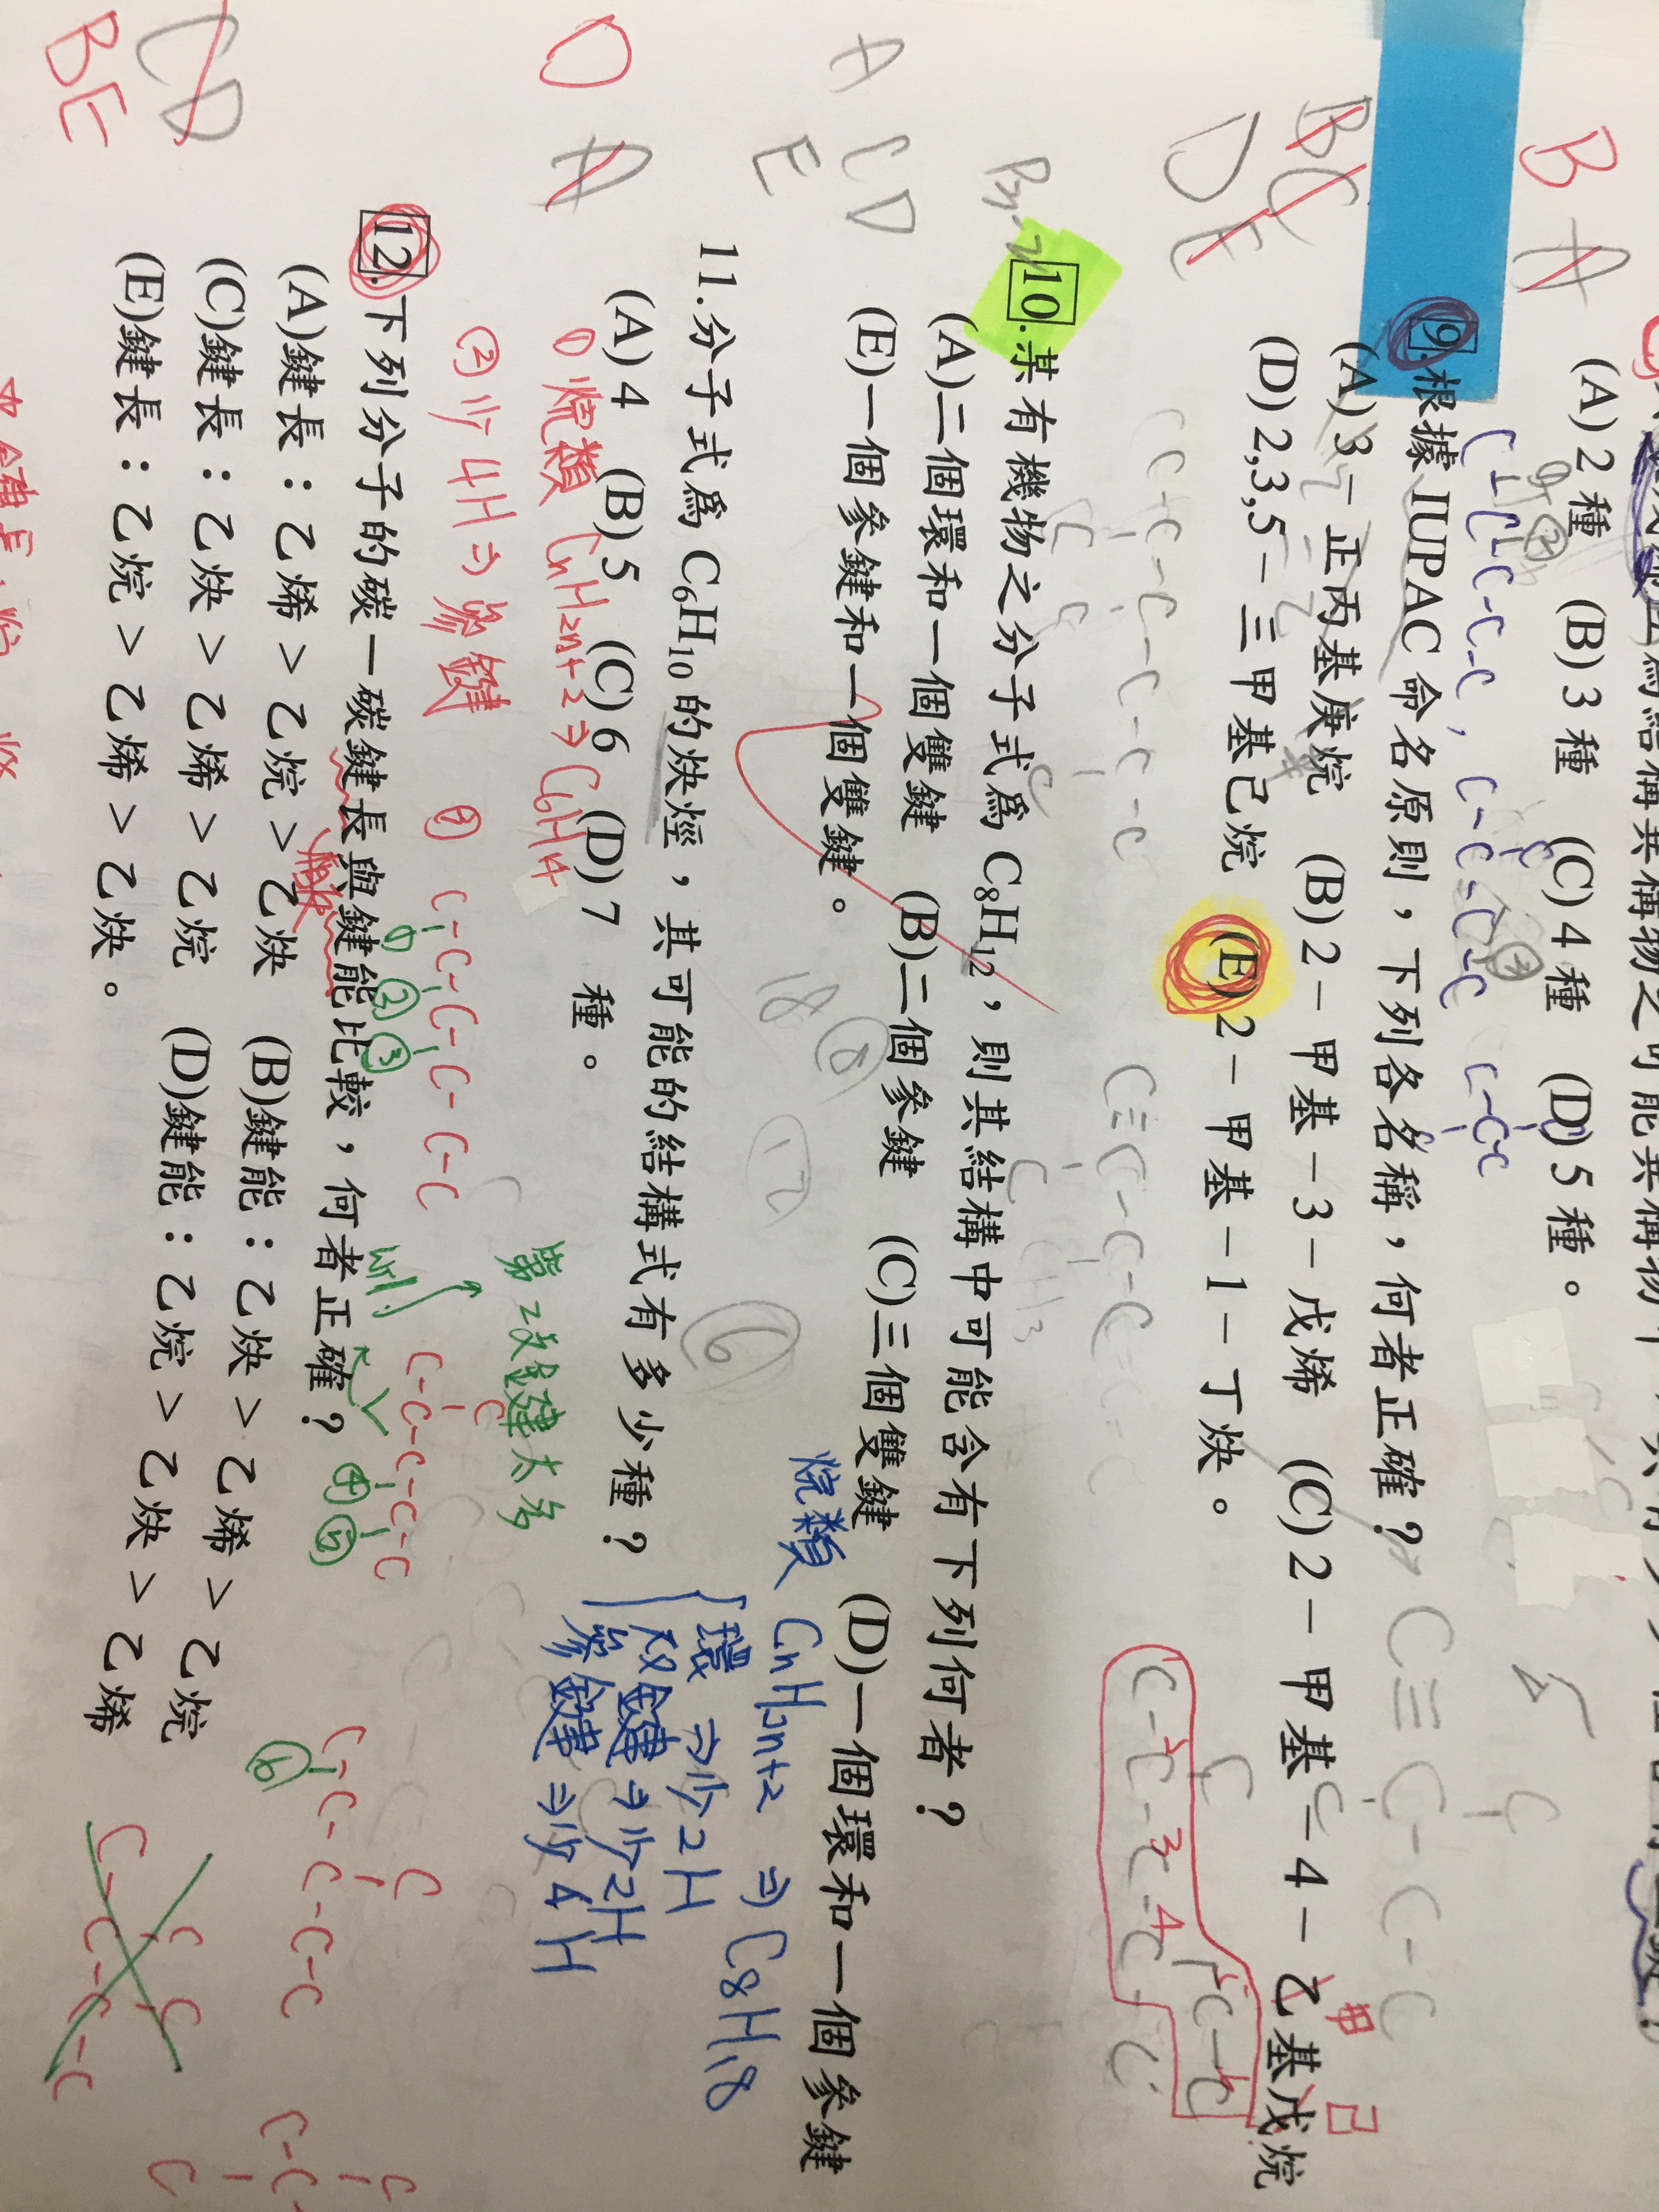 (A) 2 種 (B) 3 種 (C) 4 種 (D) 5 種。
B A
C-C-C-C-C, C-C=C-C-C
9.根據 IUPAC 命名原則，下列各名稱，何者正確？
(A) 3－正丙基庚烷 (B) 2－甲基－3－戊烯 (C) 2－甲基－4－乙基戊烷
甲 己
(D) 2,3,5－三甲基己烷 (E) 2－甲基－1－丁炔。
BC
DE
10.某有機物之分子式為 C₈H₁₂，則其結構中可能含有下列何者？
(A)二個環和一個雙鍵 (B)二個參鍵 (C)三個雙鍵 (D)一個環和一個參鍵
(E)一個參鍵和一個雙鍵。
A CD
E
18
12
6
烷類 CnH2n+2 ⇒ C8H18
環 ⇒少2H
双鍵⇒少2H
參鍵⇒少4H
11.分子式為 C₆H₁₀ 的炔烴，其可能的結構式有多少種？
(A) 4 (B) 5 (C) 6 (D) 7 種。
D A
① 烷類 CnH2n+2⇒C6H14
② 少4H⇒參鍵
第2次鍵太多
C-C-C-C-C-C
① ② ③
C-C-C-C-C
④ ⑤
C-C-C-C
⑥
12.下列分子的碳－碳鍵長與鍵能比較，何者正確？
(A)鍵長：乙烯＞乙烷＞乙炔 (B)鍵能：乙炔＞乙烯＞乙烷
(C)鍵長：乙炔＞乙烯＞乙烷 (D)鍵能：乙烷＞乙炔＞乙烯
(E)鍵長：乙烷＞乙烯＞乙炔。
CD
BE